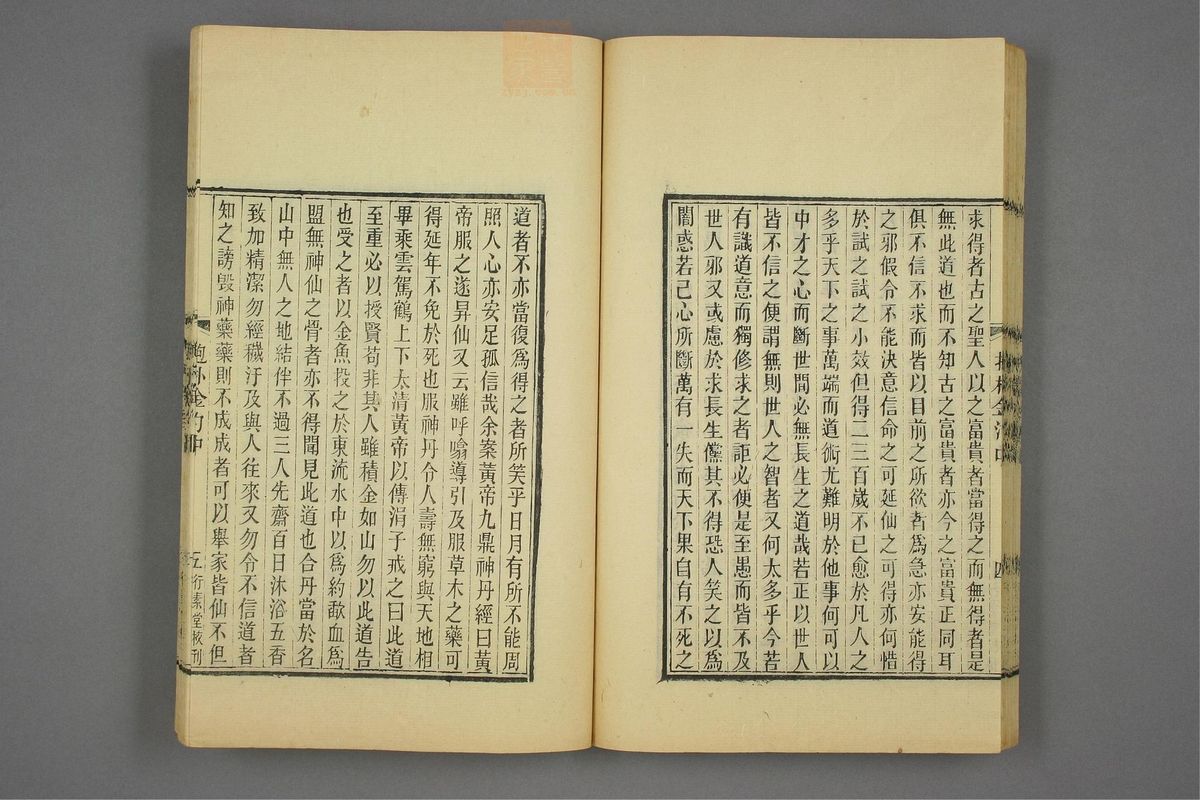 求得者古之聖人以之富貴者當得之而無得者是
無此道也而不知古之富貴者亦今之富貴正同耳
俱不信不求而皆以目前之所欲者爲急亦安能得
之邪假令不能決意信命之可延仙之可得亦何惜
於試之試之小效但得二三百歲不已愈於凡人之
多乎天下之事萬端而道術尤難明於他事何可以
中才之心而斷世間必無長生之道哉若正以世人
皆不信之便謂無則世人之智者又何太多乎今若
有識道意而獨修求之者詎必便是至愚而皆不及
世人邪又或慮於求長生儻其不得恐人笑之以爲
闇惑若己心所斷萬有一失而天下果自有不死之
四
道者不亦當復爲得之者所笑乎日月有所不能周
照人心亦安足孤信哉余案黃帝九鼎神丹經曰黃
帝服之遂昇仙又云雖呼噏導引及服草木之藥可
得延年不免於死也服神丹令人壽無窮與天地相
畢乘雲駕鶴上下太清黃帝以傳涓子戒之曰此道
至重必以授賢苟非其人雖積金如山勿以此道告
也受之者以金魚投之於東流水中以爲約歃血爲
盟無神仙之骨者亦不得聞見此道也合丹當於名
山中無人之地結伴不過三人先齋百日沐浴五香
致加精潔勿經穢汙及與人往來又勿令不信道者
知之謗毀神藥藥則不成成者可以舉家皆仙不但
五行素堂校刊